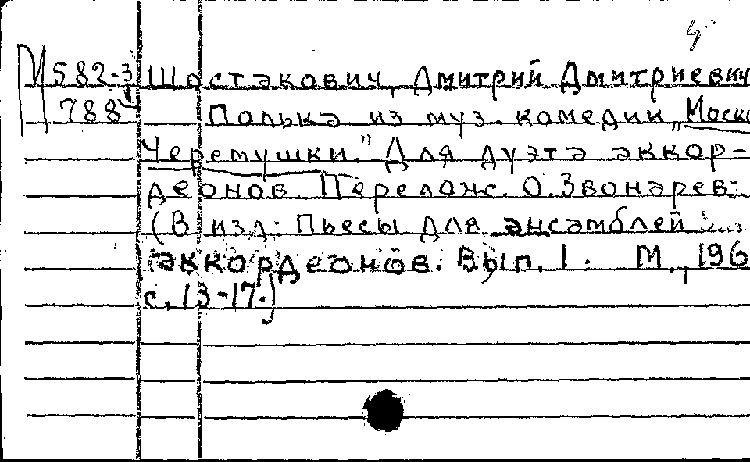 М582-3 Шостакович, Дмитрий Дмитриевич
788 Полька из муз. комедии „Моск
Черемушки." Для дуэта аккор-
деонов. Перелож. О. Звонарев.
(В изд: Пьесы для ансамблей
аккордеонов. Вып. 1. М., 196
с. 13-17.)